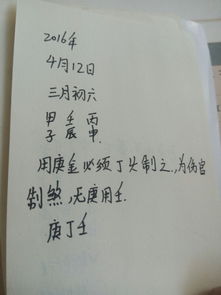 2016年
4月12日
三月初六
甲壬丙
子辰申
用庚金必须丁火制之,为伤官
制煞,无庚用壬
庚丁壬